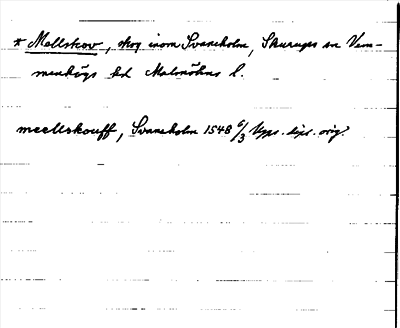 * Mellskov, skog inom Svaneholm, Skurups sn Vem-
menhögs hd Malmöhus l.
meellskouff, Svaneholm 1548 6/3 Upps. dipl. orig.